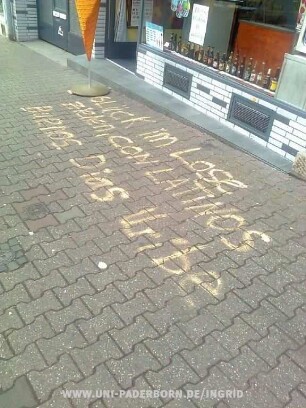 Glück im Lose
Ziehn con LATINOS
BUENOS Dias
WWW.UNI-PADERBORN.DE/INGRID